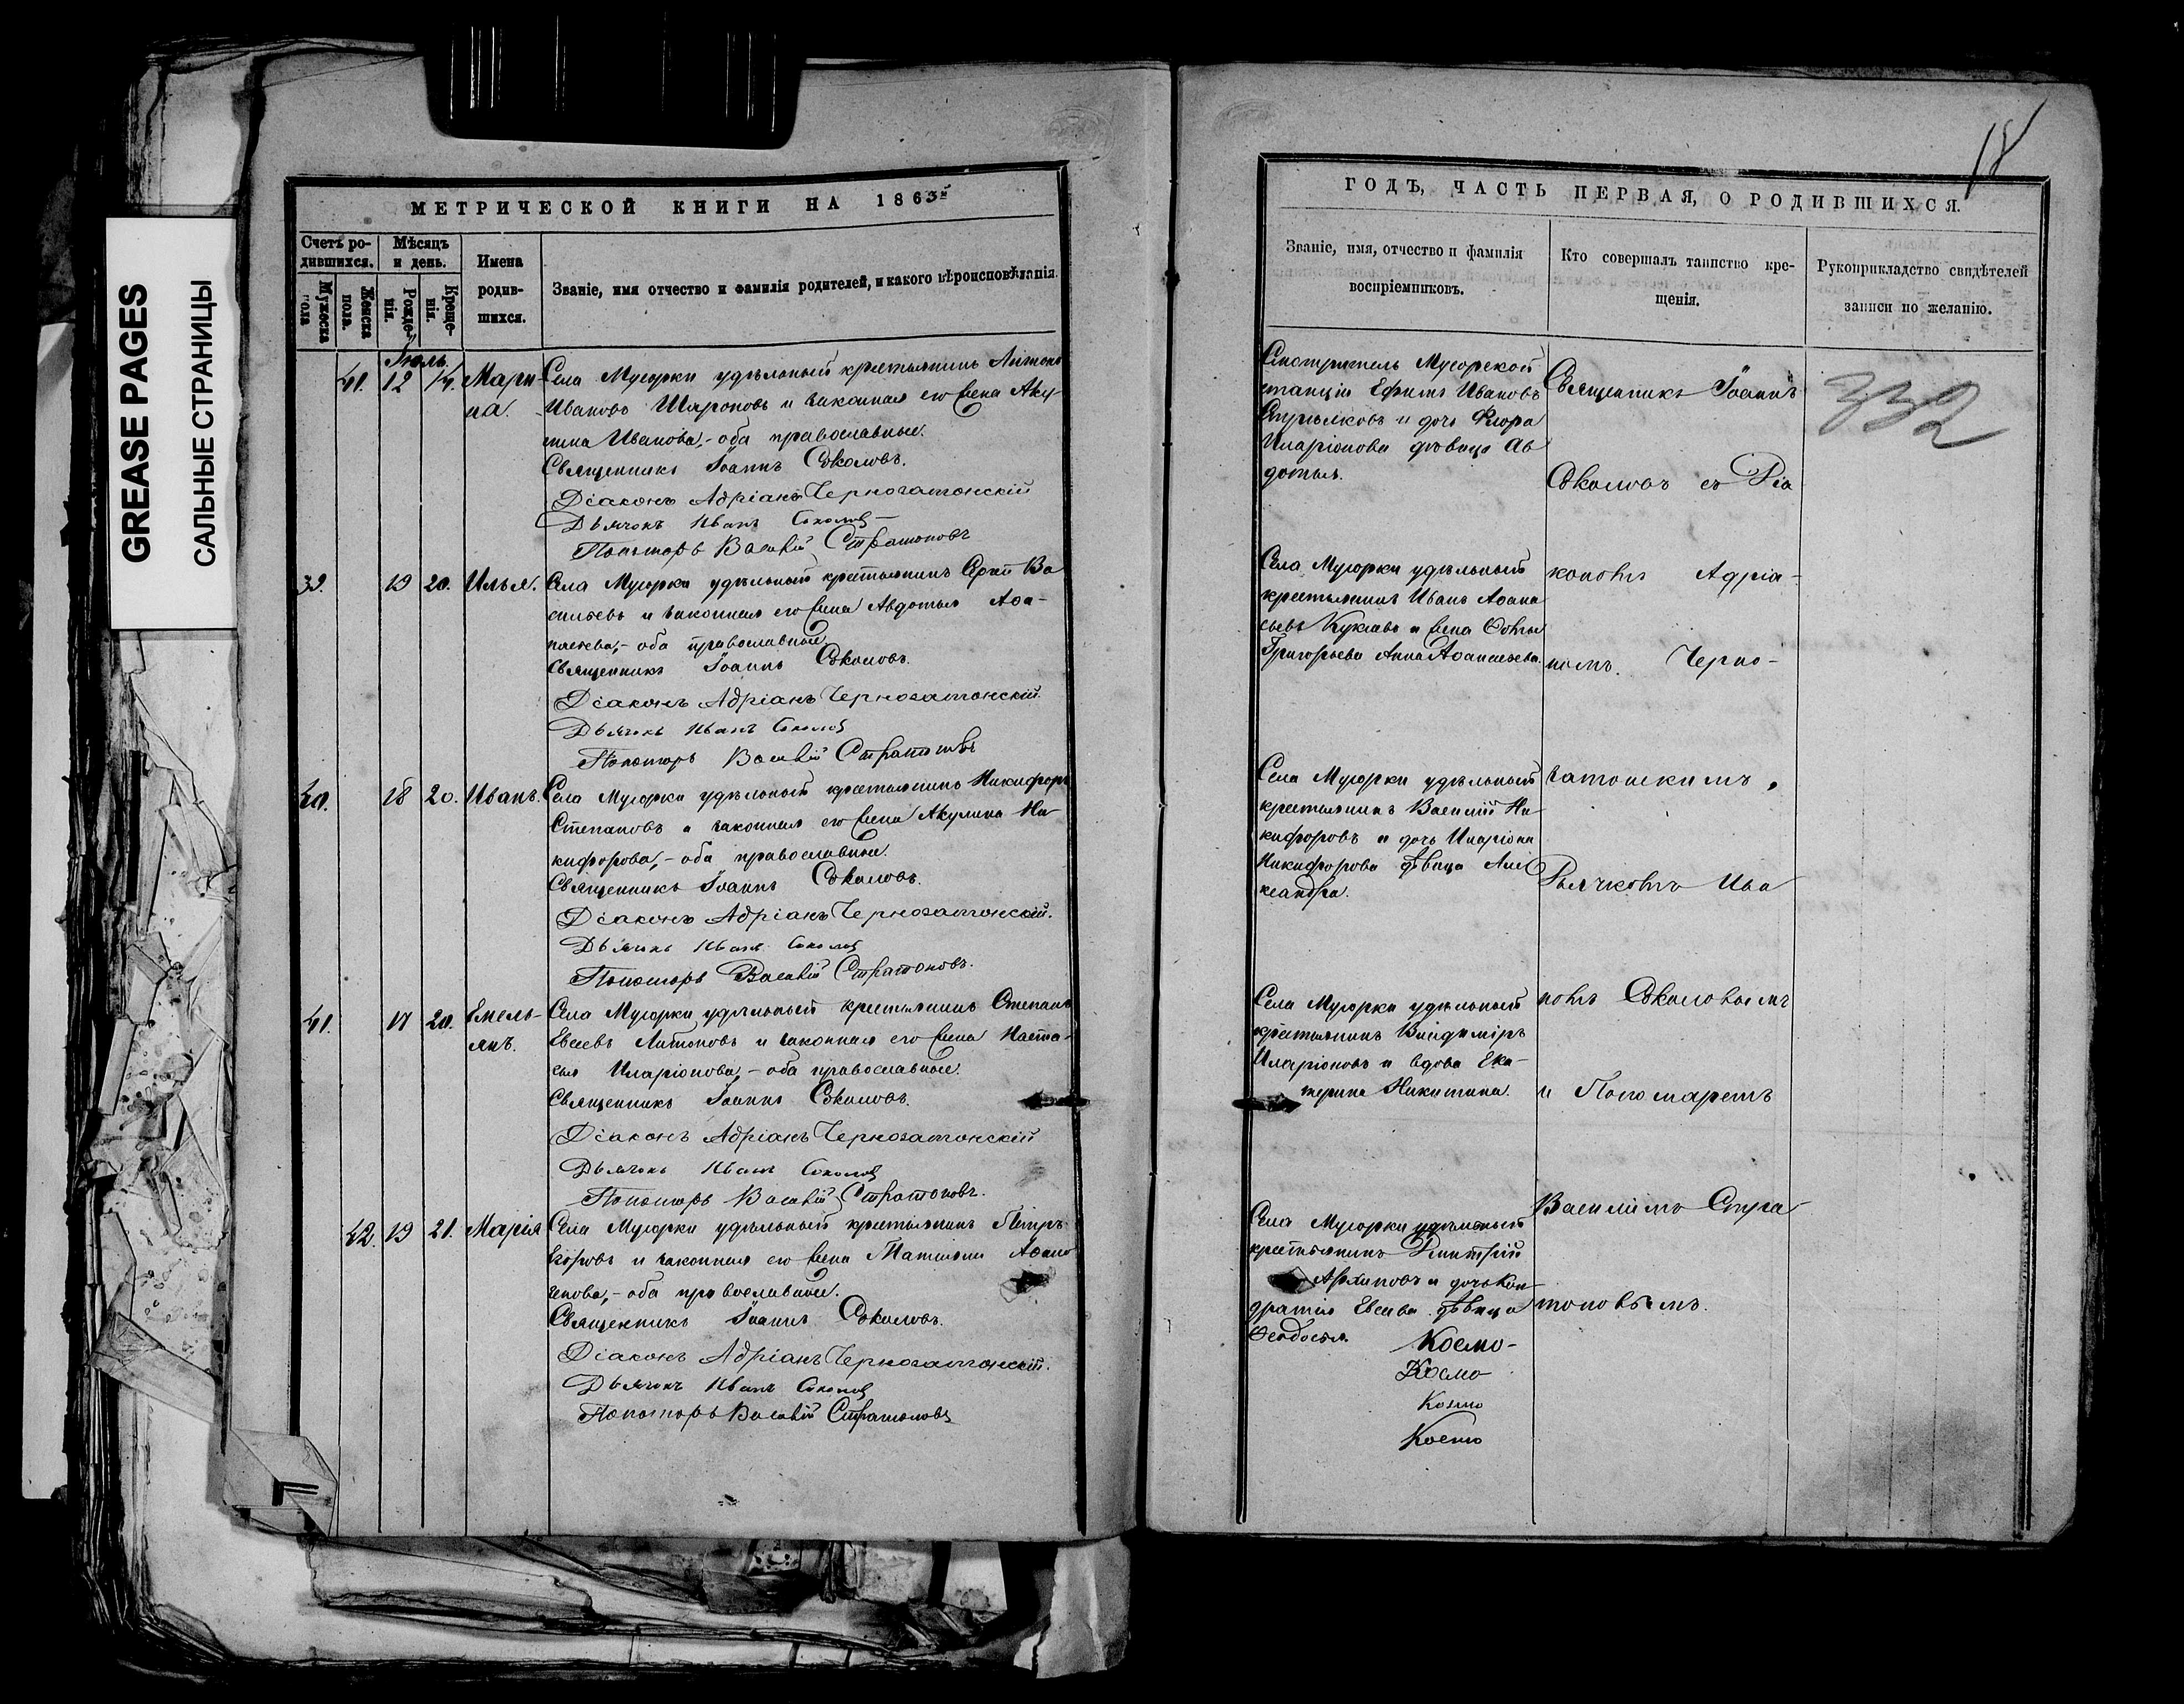 GREASE PAGES
САЛЬНЫЕ СТРАНИЦЫ
МЕТРИЧЕСКОЙ КНИГИ НА 1863й
Счетъ ро-
дившихся.
Мужеска
пола
Женска
пола.
Мѣсяцъ
и день.
Рожде-
нія.
Креще-
нія.
Имена
родив-
шихся.
Званіе, имя отчество и фамилія родителей, и какого вѣроисповѣданія.
Іюль.
41. 12 14. Мари- Села Мусорки удѣльный крестьянинъ Антонъ
на. Ивановъ Шароновъ и законная его жена Аку-
лина Иванова, - оба православные.
Священникъ Іоаннъ Соколовъ.
Діаконъ Адріанъ Черногатонскій
Дьячокъ Иванъ Соколов
Пономарь Василій Стратоновъ
39. 19 20. Илья. Села Мусорки удѣльный крестьянинъ Сергѣй Ва
сильевъ и законная его жена Авдотья Аѳа-
насьева, - оба православные
Священникъ Іоаннъ Соколовъ.
Діаконъ Адріанъ Черногатонскій.
Дьячокъ Иванъ Соколов
Пономарь Василій Стратоновъ
40. 18 20. Иванъ. Села Мусорки удѣльный крестьянинъ Никифоръ
Степановъ и законная его жена Акулина Ни-
кифорова, - оба православные.
Священникъ Іоаннъ Соколовъ.
Діаконъ Адріанъ Черногатонскій.
Дьячокъ Иванъ Соколов
Пономарь Василій Стратоновъ.
41. 17 20. Емель- Села Мусорки удѣльный крестьянинъ Степанъ
янъ. Евсеевъ Антоновъ и законная его жена Наста-
сья Иларіонова, - оба православные.
Священникъ Іоаннъ Соколовъ.
Діаконъ Адріанъ Черногатонскій
Дьячокъ Иванъ Соколов
Пономарь Василій Стратоновъ.
42. 19 21. Марія Села Мусорки удѣльный крестьянинъ Петръ
Егоровъ и законная его жена Татьяна
- оба православные.
Священникъ Іоаннъ Соколовъ.
Діаконъ Адріанъ Черногатонскій.
Дьячокъ Иванъ Соколов
Пономарь Василій Стратоновъ
18
ГОДЪ, ЧАСТЬ ПЕРВАЯ, О РОДИВШИХСЯ.
Званіе, имя, отчество и фамилія
воспріемниковъ.
Кто совершалъ таинство кре-
щенія.
Рукоприкладство свидѣтелей
записи по желанію.
Смотритель Мусорской
станціи Ефимъ Ивановъ
Стрѣлковъ и дочь Флора
Иларіонова дѣвица Ав
дотья.
Села Мусорки удѣльный
крестьянинъ Иванъ Аѳана
сьевъ и жена
Григорьева Анна Аѳанасьева.
Села Мусорки удѣльный
крестьянинъ Василій Ни-
кифоровъ и дочь Иларіона
Никифорова дѣвица Алек
сандра.
Села Мусорки удѣльный
крестьянинъ Владиміръ
Иларіоновъ и вдова Ека-
терина Никитина.
Села Мусорки удѣльный
крестьянинъ Димитрій
Архиповъ и дочь Кон-
дратія Евсеева дѣвица
Ѳеодосья.
Космо-
Космо
Козмо
Космо
Священникъ Іоаннъ
Соколовъ съ Діа
кономъ Адріа-
номъ Черно-
гатонскимъ,
Дьячкомъ Ива
номъ Соколовымъ
и Пономаремъ
Василіемъ Стра
тоновымъ.
332